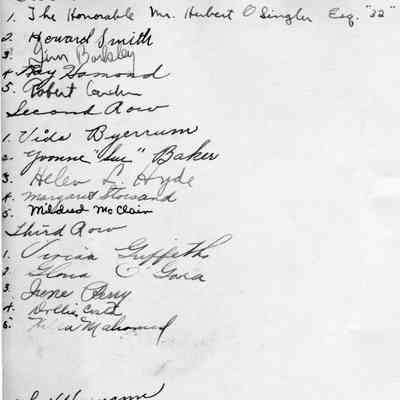 1. The Honorable Mr. Herbert O Singler Esq. "32"
2. Howard Smith
3. Jim Barkley
4. Ray Hamond
5. Robert
Second Row
1. Vida Byerrum
2. Yvonne "Sue" Baker
3. Helen L. Hyde
4. Margaret
5. Mildred McClain
Third Row
1. Vivian Griffith
2. Gloria
3. Irene Perry
4. Dollie
5. Mahomed